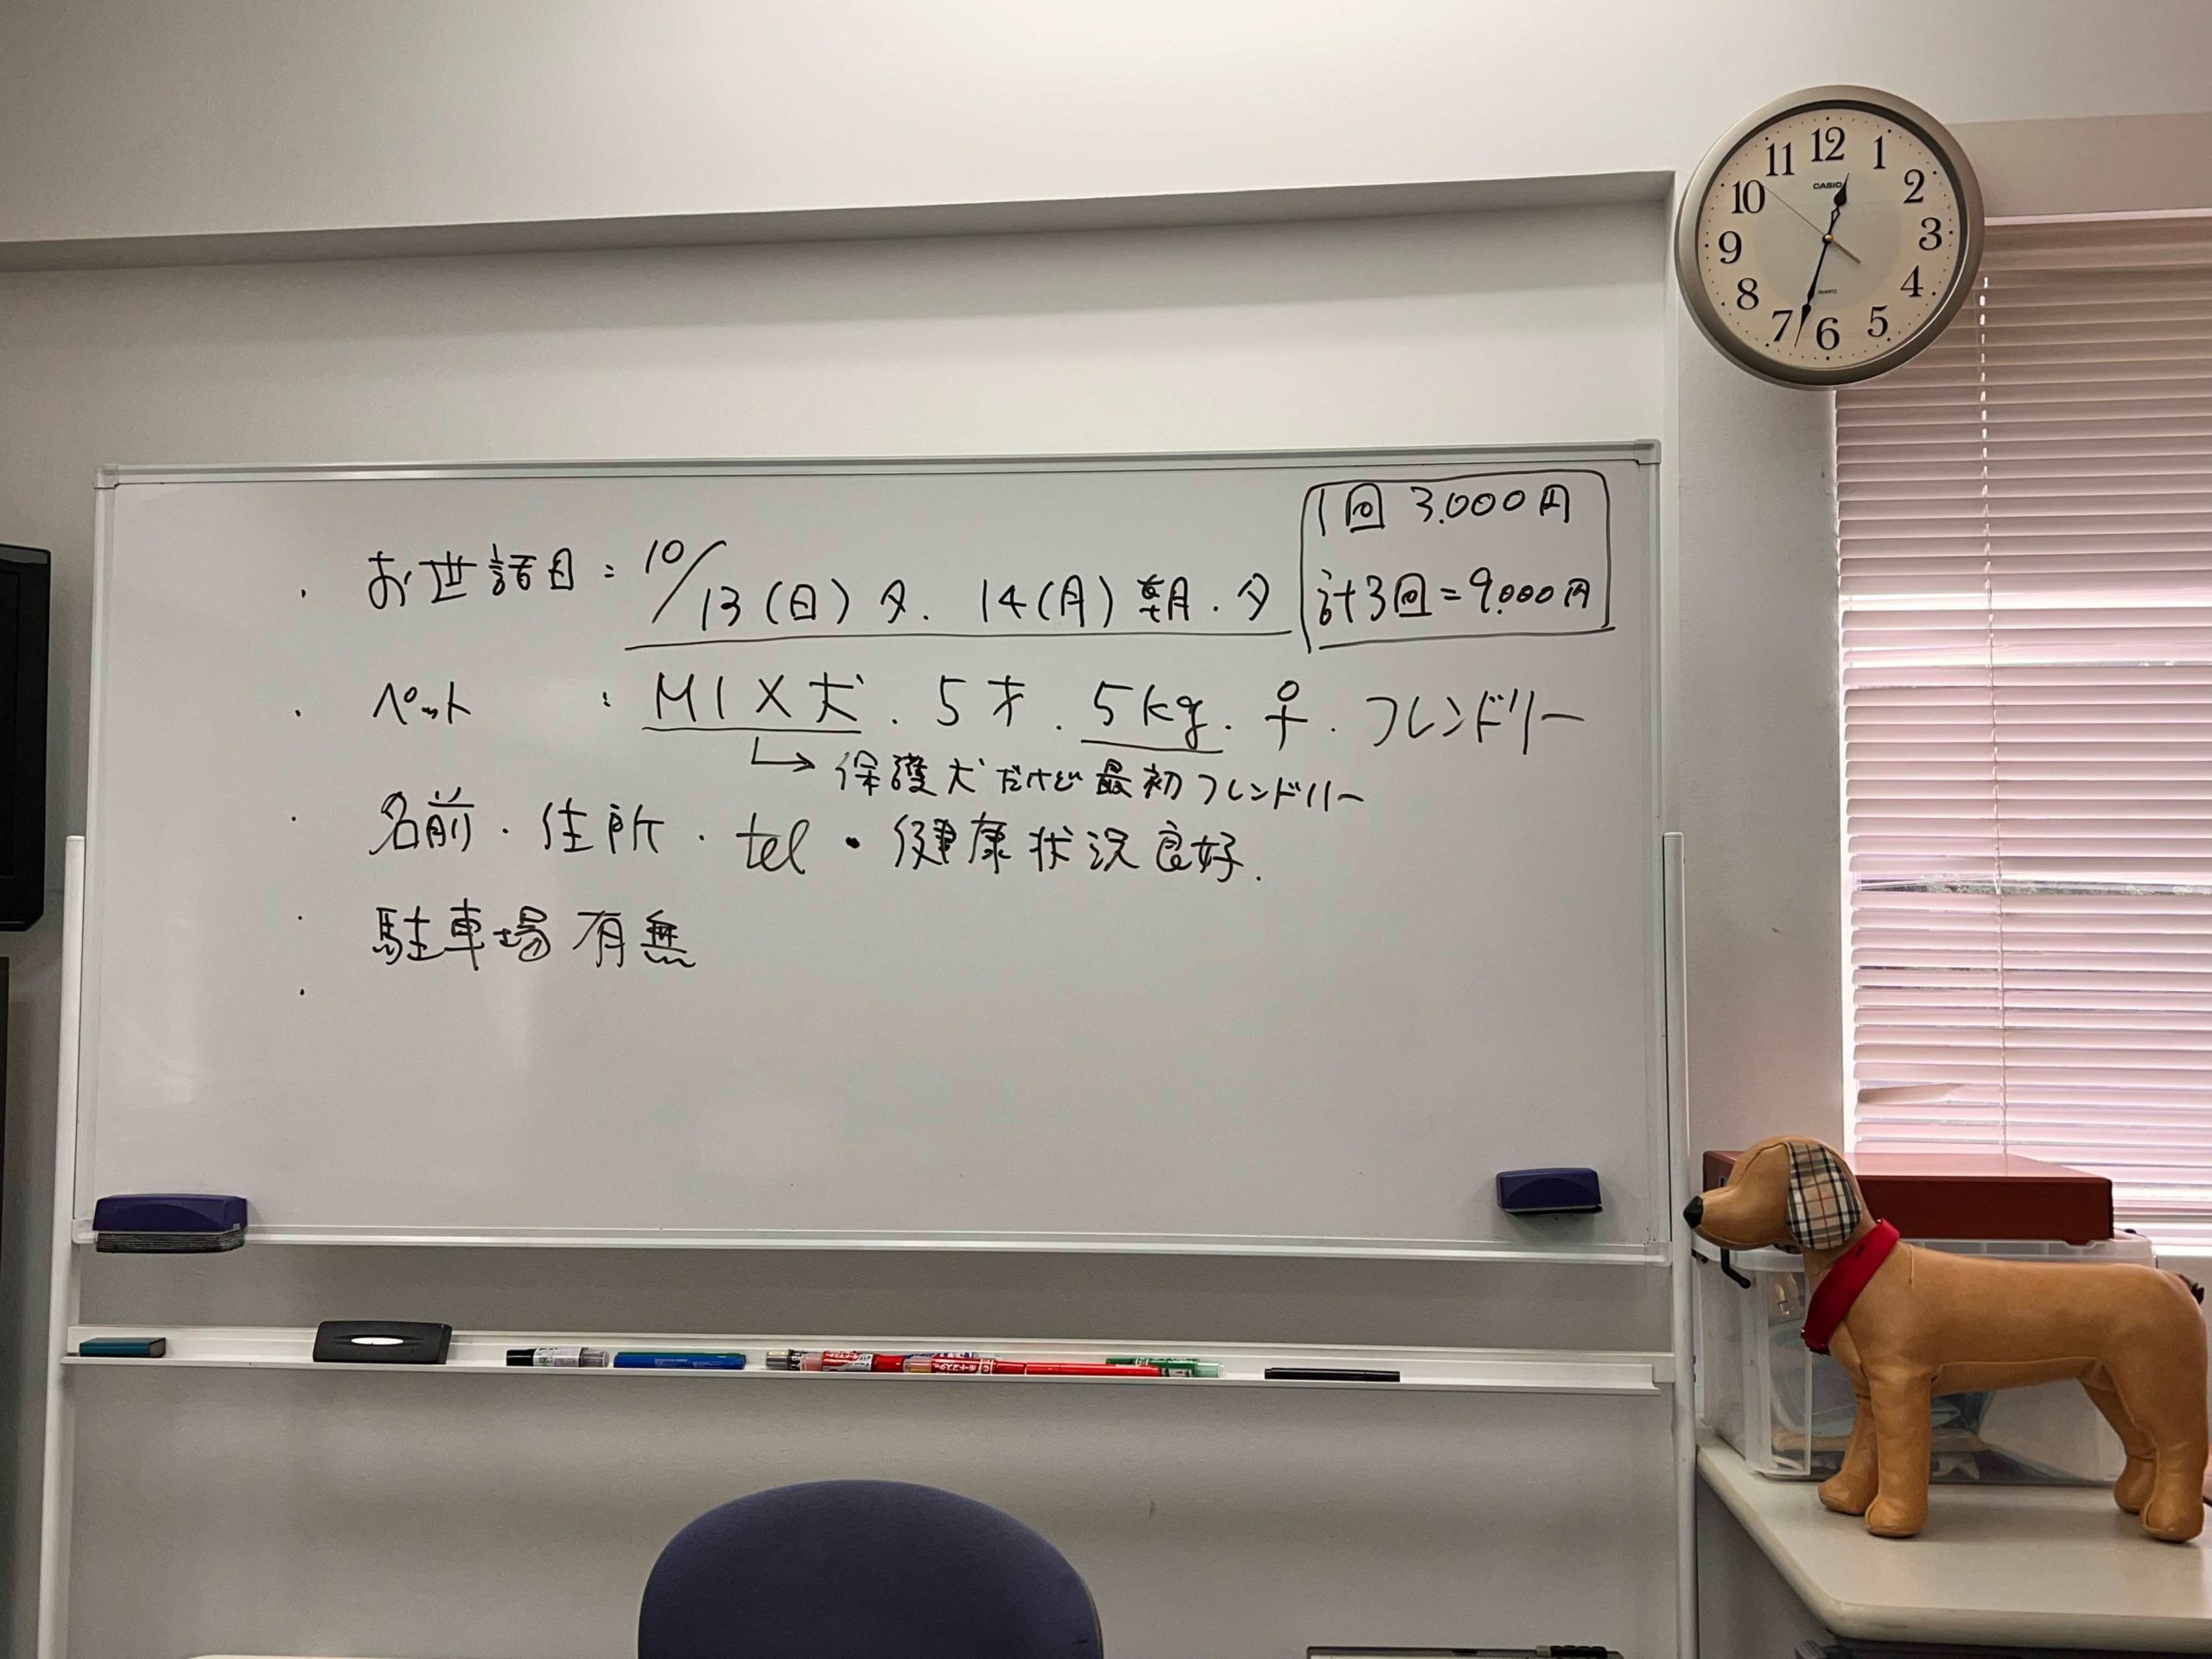 1回 3.000円
計3回=9.000円
・お世話日: 10/13(日)夕. 14(月)朝・夕
・ペット : MIX犬. 5才. 5kg. ♀. フレンドリー
↳ 保護犬だけど最初フレンドリー
・名前・住所・tel・健康状況良好.
・駐車場有無
・
12
1
2
3
4
5
6
7
8
9
10
11
CASIO
QUARTZ